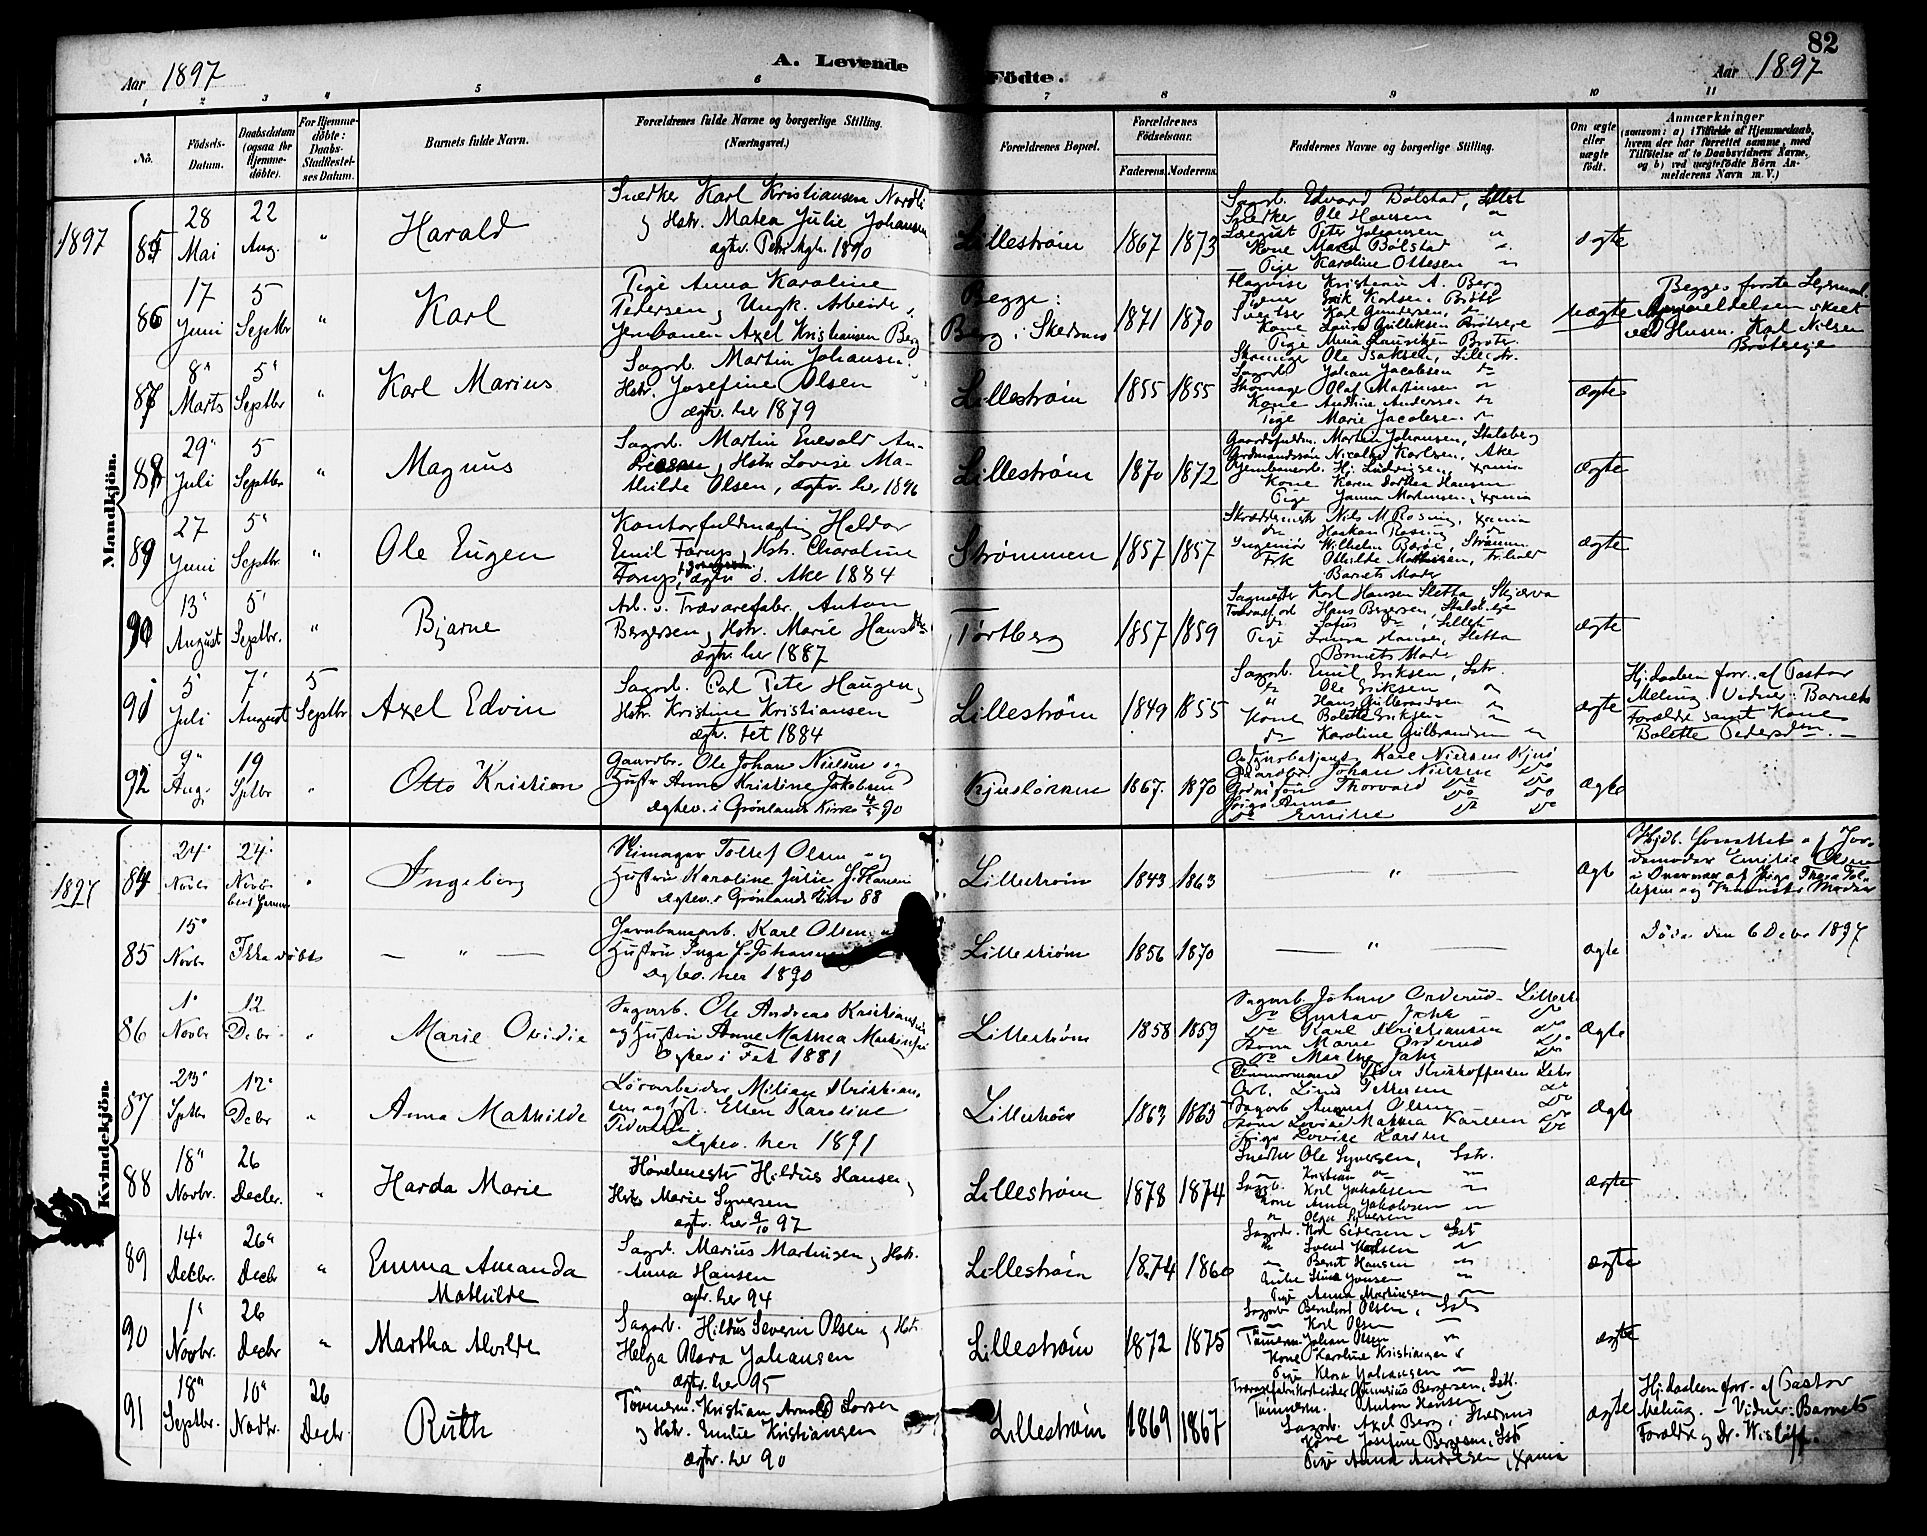 82
Aar 1897
A. Levende Fødte.
Aar 1897
1 2 3 4 5 6 7 8 9 10 11
No.
Fødsels-Datum.
Daabsdatum (ogsaa for Hjemmedøbte).
For Hjemmedøbte: Daabs-Stadfæstelses Datum.
Barnets fulde Navn.
Forældrenes fulde Navne og borgerlige Stilling.
(Næringsvei.)
Forældrenes Bopæl.
Forældrenes Fødselsaar.
Faderens. Moderens.
Faddernes Navne og borgerlige Stilling.
Om ægte eller uægte født.
Anmærkninger
(saasom: a) i Tilfælde af Hjemmedaab, hvem der har forrettet samme, med Tilføielse af to Daabsvidners Navne, og b) ved uægtefødte Børn Anmelderens Navn m. V.)
Mandkjøn.
1897
85
28 Mai
22 Aug.
"
Harald
Snedker Karl Kristiansen Nordli
og Hstr. Matea Julie Johansen
ægtv. 1890
Lillestrøm
1867 1873
Sagarb. Edvard Bølstad, Lillest
Snedker Ole Hansen "
Petr Johansen "
Kone Maren Bølstad "
Pige Karoline Ottesen "
ægte
86
17 Juni
5 Septbr
"
Karl
Pige Anna Karoline
Pedersen og Ungk. Arbeider v.
Jernbanen Axel Kristiansen Berg
Begge:
Berg i Skedsmo
1871 1870
Kristian A. Berg
Erik Karlsen Brøter
Karl Gundersen, do
Kone Laura Gulliksen Brøterie
Pige Anna Lauritzen Brøter
uægte
Begges første Leiermaal.
Anmeldelsen skeet
ved Husm. Karl Nilsen
Brøtereie
87
8 Marts
5 Septbr
"
Karl Marius
Sagarb. Martin Johansen
Hstr. Josefine Olsen
ægtv. her 1879
Lillestrøm
1855 1855
Skomager Ole Isaksen, Lillestr.
Sagarb. Johan Jacobsen do
Skomager Olaf Martinsen "
Kone Andrine Andersen do
Pige Marie Jacobsen "
ægte
88
29 Juli
5 Septbr
"
Magnus
Sagarb. Martin Enevald An-
driesen og Hstr Lovise Ma-
thilde Olsen, ægtv. her 1896
Lillestrøm
1870 1872
Martin Johansen, Stalsberg
Gaardmandssøn Nicolai Karlsen, Aker
Jernbanearb. Hj. Ludvigsen, Xania
Kone Karen Dorthea Hansen
Pige Janna Martinsen, Xania
ægte
89
27 Juni
5 Septbr
"
Ole Eugen
Kontorfuldmægtig Haldor
Emil Farup og Hstr. Charoline
Farup, ægtv i V. Aker 1884
Strømmen
1857 1857
Nils M Rosing, Xania
do Haakon Rosing "
Ingeniør Wilhelm Barøe, Strømm.
Frk Othilde Mathiesen,
Barnets Moder
ægte
90
13 August
5 Septbr.
"
Bjarne
Arb. v. Trævarefabr. Anton
Bergersen og Hstr. Marie Hansdtr
ægtv. her 1887
Tortberg
1857 1859
Sagmester Karl Hansen Sletta, Skjærva
Hans Bergersen,
do Sofus do, Lillest
Pige Laura Hansen, Sletta
Barnets Moder
ægte
91
5 Juli
7 August
5 Septbr
Axel Edvin
Sagarb. Carl Peter Haugen og
Hstr Kristine Kristiansen
ægtv. Fet 1884
Lillestrøm
1849 1855
Sagarb. Emil Eriksen, Lstr.
do Ole Eriksen "
" Hans Gulbrandsen "
Kone Bolette Eriksen "
do Karoline Gulbrandsen "
ægte
Hj.daaben forr. af Pastor
Mehug. Vidner: Barnets
Forældre samt Kone
Bolette Pedersdtr. —
92
9 Aug.
19 Sptbr
"
Otto Kristian
Gaardbr. Ole Johan Nielsen og
Hustr Anna Kristine Jakobsen
Ægtev. i Grønlands Kirke 4/5 90
1867. 1870
Karl Nielsen
Gaardbr. Johan Nielsen do
Thorvald do do
Pige Anna do
do Emilie do do
Ægte
Kvindekjøn.
1897
84
24 Novbr
24 Novbr
"
Ingeborg
Skomager Tollef Olsen og
Hustru Karoline Julie J. Hansen
Ægtev. i Grønlands Kirke 88
Lillestrøm
1843 1863
— " —
Ægte
Hjdb. forrettet af Jor-
demoder Emilie Olsen
i Nærvær af Pige Thora Tol-
lefsen og Barnets Moder
85
15 Novbr
Ikke døbt
— " —
Jernbanearb. Karl Olsen og
Hustru Inga J. Johannesen
Ægtev. her 1890
Lillestrøm
1856 1870
— " —
Ægte
Døde den 6 Debr 1897
86
1 Novbr
12 Debr
"
Marie Ovidie
Sagarb. Ole Andreas Kristiansen
og Hustru Anne Mathea Martinsen
Ægtev i Fet 1881
Lillestrøm
1858 1859
Sagarb. Johan Orderud Lillestr
Do Gustav Jahr do
Do Karl Kristiansen do
Kone Marie Orderud do
Do Marthe Jahr do
Ægte
87
23 Sptbr
12 Debr
"
Anna Mathilde
Løsarbeider Milian Kristian-
sen og H. Ellen Karoline
Pedersen
Ægtev. her 1891
Lillestrøm
1863 1863
Tømmermand Peder Kristoffersen Lstr
Arb. Linus Pettersen do
Sagarb August Olsen do
Kone Lovise Mathea Karlsen do
Pige Lovise Larsen do
Ægte
88
18 Novbr.
26 Decbr.
"
Harda Marie
Høvlemestr Hildus Hansen og
Hstr Marie Syversen
ægtv. her 9/10 97
Lillestrøm
1878 1874
Snedker Ole Syversen, Lstr.
" Kristian do "
Sagb. Karl Jakobsen "
Kone Anna Jakobsen "
" Olga Syversen
ægte
89
14 Decbr.
26 Decbr
"
Emma Amanda
Mathilde
Sagarb. Marius Martinsen og Hstr.
Anna Hansen
ægtv. her 94
Lillestrøm
1874 1860
Sagarb. Karl Pedersen, Lst
" Svend Madsen "
" Bernt Hansen "
Enke Stina Jonsen "
Pige Anna Martinsen "
ægte
90
1 Novbr.
26 Decbr
"
Martha Alvilde
Sagarb. Hildus Severin Olsen og Hstr.
Helga Alara Johansen
ægtv. her 95
Lillestrøm
1872 1875
Sagarb Bernhard Olsen, Lst
" Karl Olsen "
Tømmerm. Johan Olsen "
Kone Karoline Kristiansen "
Pige Klara Johansen "
ægte
91
18 Septbr.
10 Novbr.
26 Decbr.
Ruth
Tømmerm. Kristian Arnold Larsen
og Hstr. Emilie Kristiansen
ægtv. her 90
Lillestrøm
1869 1867
Trævarefabrikarbeider Bergersen, Lstr.
Tømmerm. Anton Hansen
Sagarb. Axel Berg, Skedsmo
Kone Josefine Bergersen, Lst
Pige Anna Andresen, Xania
ægte
Hj.daaben forr. af Pastor
Mehug. — Vidner: Barnets
Forældre og Dr. Wisløff.